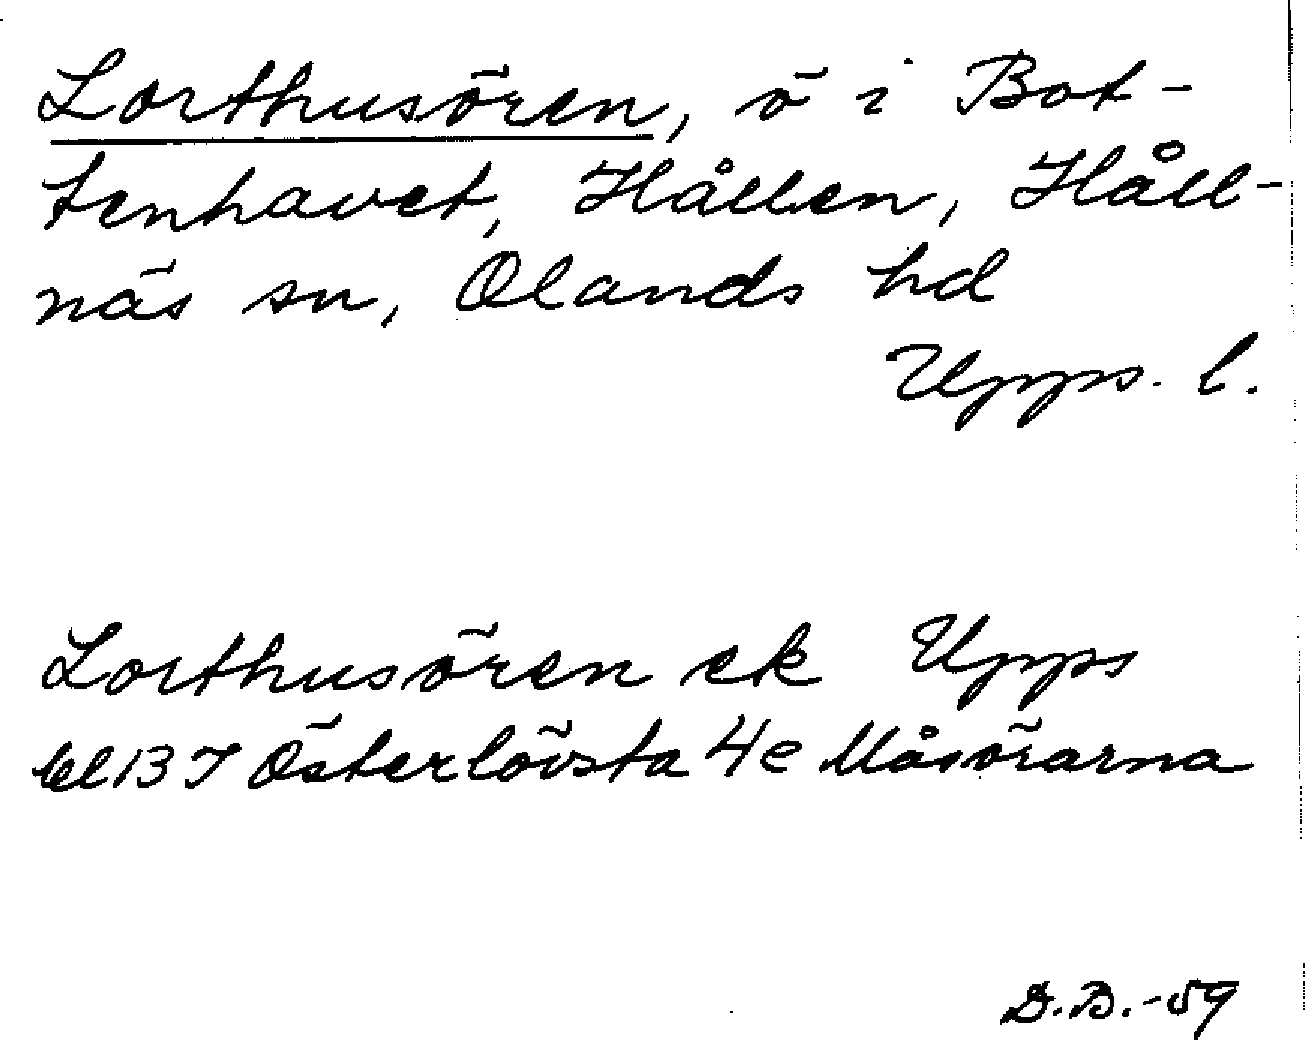 Lorthusören, ö i Bot-
tenhavet, Hållen, Håll-
näs sn, Olands hd
Upps. l.
Lorthusören ek Upps
bl 13 I Österlövsta 4e Måsörarna
D.B.-59